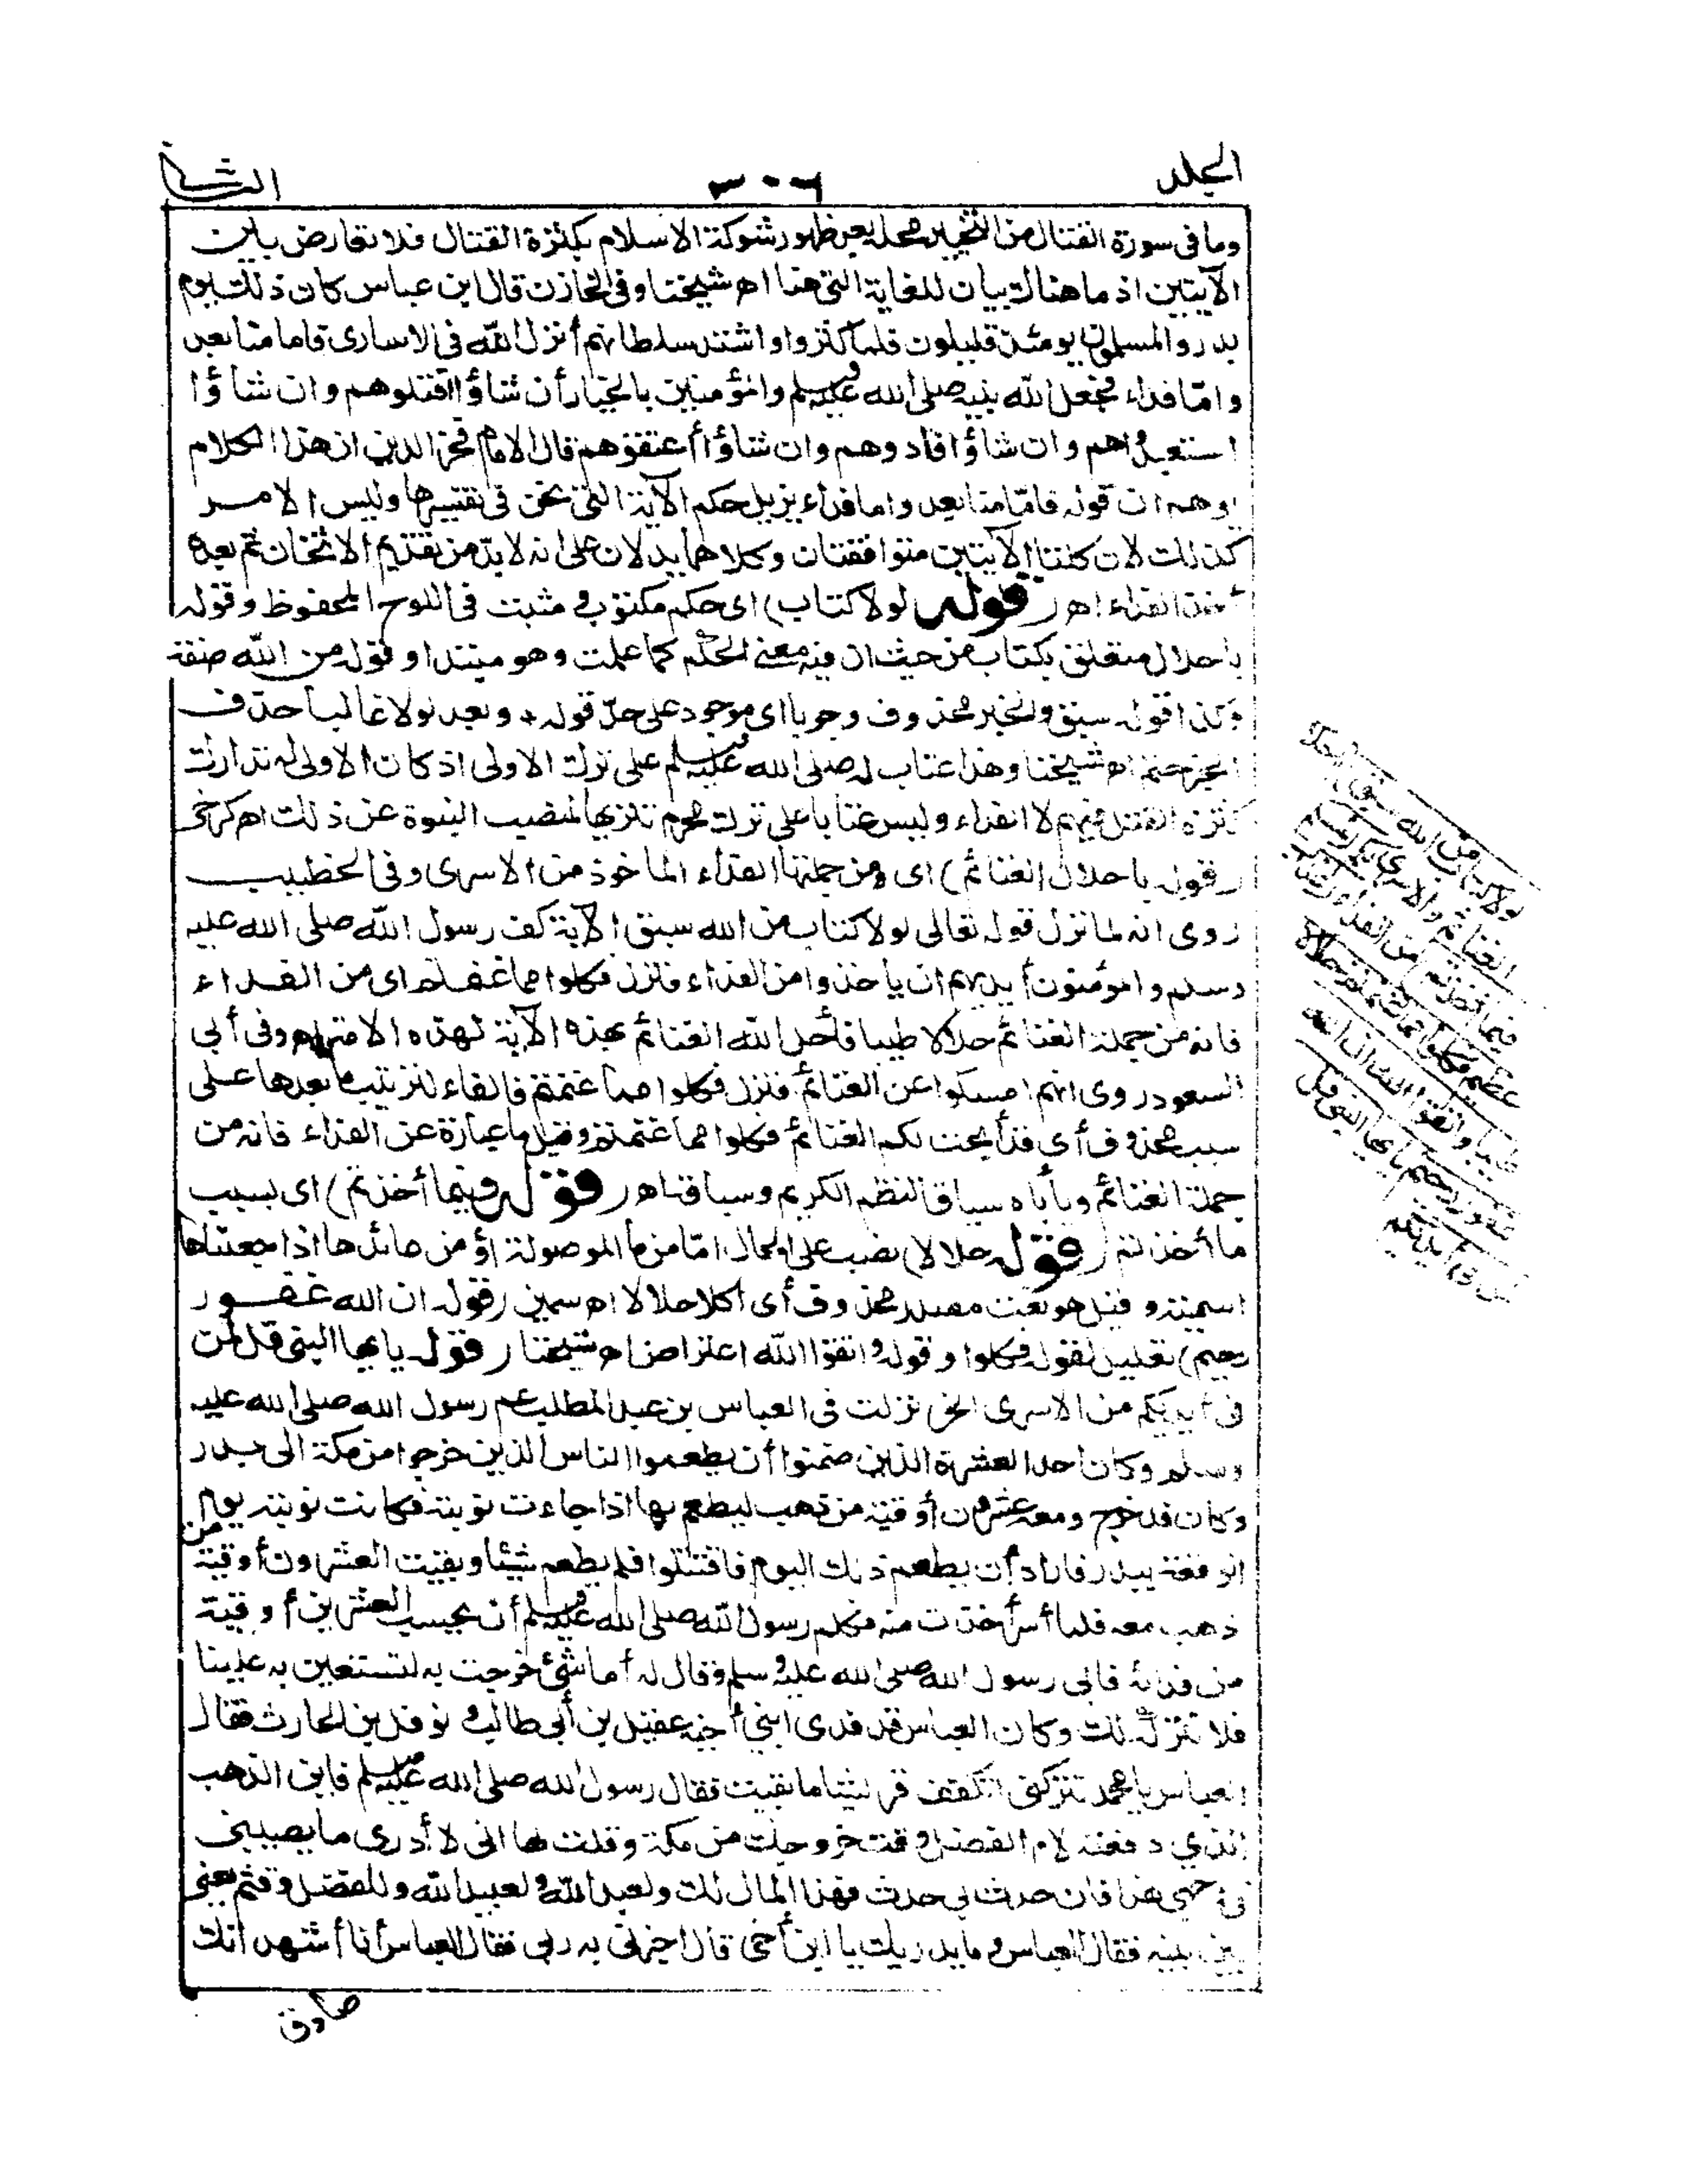 المجلد
٣٠٦
الثانى
وما فى سورة القتال من التخيير محله بعد ظهور شوكة الاسلام بكثرة القتال فلا تعارض بين
الآيتين اذ ما هناك بيان للغاية التى هنا اهـ شيخنا وفى الخازن قال ابن عباس كان ذلك يوم
بدر والمسلمون يومئذ قليلون فلما كثروا واشتد سلطانهم أنزل الله فى الاسارى فاما منا بعد
وامّا فداء فجعل الله نبيه صلى الله عليه وسلم والمؤمنين بالخيار أن شاؤا قتلوهم وان شاؤا
استعبدوهم وان شاؤا فادوهم وان شاؤا أعتقوهم قال الامام فخر الدين ان هذا الكلام
يوهم ان قوله فامّا منا بعد واما فداء يزيل حكم الآية التى نحن فى تفسيرها وليس الامر
كذلك لان كلتا الآيتين متوافقتان وكلاهما يدلان على انه لابدّ من تقديم الاثخان ثم بعده
أخذ الفداء اهـ (قوله لولا كتاب) اى حكم مكتوب مثبت فى اللوح المحفوظ وقوله
باحلال متعلق بكتاب من حيث ان فيه معنى الحكم كما علمت وهو مبتدا وقوله من الله صفته
وكذا قوله سبق والخبر محذوف وجوبا اى موجود على حدّ قوله * وبعد لولا غالبا حذف
الخبر حتم اهـ شيخنا وهذا عتاب له صلى الله عليه وسلم على ترك الاولى اذ كان الاولى له تدارك
كثرة القتل فيهم لا الفداء وليس عتابا على ترك محرم تنزيها لمنصب النبوة عن ذلك اهـ كرخى
(قوله باحلال الغنائم) اى ومن جملتها الفداء الماخوذ من الاسرى وفى الخطيب
روى انه لما نزل قوله تعالى لولا كتاب من الله سبق الآية كف رسول الله صلى الله عليه
وسلم والمؤمنون أيديهم ان ياخذوا من الفداء فنزل فكلوا مما غنمتم اى من الفداء
فانه من جملة الغنائم حلالا طيبا فأحل الله الغنائم بهذه الآية لهذه الامة اهـ وفى أبى
السعود روى انهم امسكوا عن الغنائم فنزل فكلوا مما غنمتم فالفاء لترتيب ما بعدها على
سبب محذوف أى قد أبحت لكم الغنائم فكلوا مما غنمتم وقيل ما عبارة عن الفداء فانه من
جملة الغنائم ويأباه سياق النظم الكريم وسباقه اهـ (قوله فيما أخذتم) اى بسبب
ما أخذتم (قوله حلالا) نصب على الحال امّا من ما الموصولة أو من عائدها اذا جعلناها
اسمية وقيل هو نعت مصدر محذوف أى اكلا حلالا اهـ سمين (قوله ان الله غفور
رحيم) تعليل لقوله فكلوا وقوله واتقوا الله اعتراض اهـ شيخنا (قوله يا يها النبى قل لمن
فى أيديكم من الاسرى الخ) نزلت فى العباس بن عبد المطلب عم رسول الله صلى الله عليه
وسلم وكان احد العشرة الذين ضمنوا أن يطعموا الناس الذين خرجوا من مكة الى بدر
وكان قد خرج ومعه عشرون أوقية من ذهب ليطعم بها اذا جاءت نوبته فكانت نوبته يوم
الوقعة ببدر فاراد أن يطعم ذلك اليوم فاقتتلوا فلم يطعم شيئا وبقيت العشرون أوقية من
ذهب معه فلما أسر أخذت منه فكلم رسول الله صلى الله عليه وسلم أن يحسب العشرين أوقية
من فدائه فابى رسول الله صلى الله عليه وسلم وقال له أما شئ خرجت به لتستعين به علينا
فلا نترك لك وكان العباس قد فدى ابنى أخيه عقيل بن أبى طالب ونوفل بن الحارث فقال
العباس يا محمد تتركنى اتكفف قريشا ما بقيت فقال رسول الله صلى الله عليه وسلم فاين الذهب
الذي دفعته لام الفضل وقت خروجك من مكة وقلت لها انى لا أدرى ما يصيبنى
فى وجهى هذا فان حدث بى حدث فهذا المال لك ولعبد الله ولعبيد الله وللفضل وقثم يعنى
بين بنيه فقال العباس وما يدريك يا ابن أخى قال اخبرنى به ربى فقال العباس أنا أشهد انك
صادق
لولا كتاب من الله سبق باحلال
الغنائم والاسرى لكم لمسكم
فيما أخذتم من الفداء عذاب
عظيم فكلوا مما غنمتم حلالا
طيبا واتقوا الله ان الله
غفور رحيم يا يها النبى قل
لمن فى أيديكم